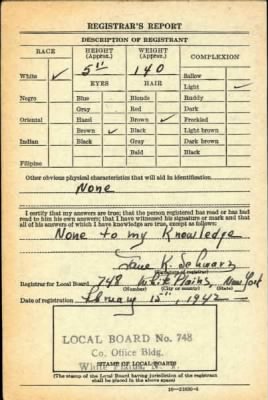 REGISTRAR'S REPORT
DESCRIPTION OF REGISTRANT
RACE HEIGHT (Approx.) WEIGHT (Approx.) COMPLEXION
5" 140 Sallow
White ✓ EYES HAIR Light ✓
Negro Blue Blonde Ruddy
Gray Red Dark
Oriental Hazel Brown ✓ Freckled
Brown ✓ Black Light brown
Indian Black Gray Dark brown
Bald Black
Filipino
Other obvious physical characteristics that will aid in identification
None
I certify that my answers are true; that the person registered has read or has had
read to him his own answers; that I have witnessed his signature or mark and that
all of his answers of which I have knowledge are true, except as follows:
None to my Knowledge
K. Schwarz
(Signature of registrar)
Registrar for Local Board 748 White Plains New York
(Number) (City or county) (State)
Date of registration February 15th, 1942
LOCAL BOARD No. 748
Co. Office Bldg.
White Plains, N. Y.
(STAMP OF LOCAL BOARD)
(The stamp of the Local Board having jurisdiction of the registrant
shall be placed in the above space)